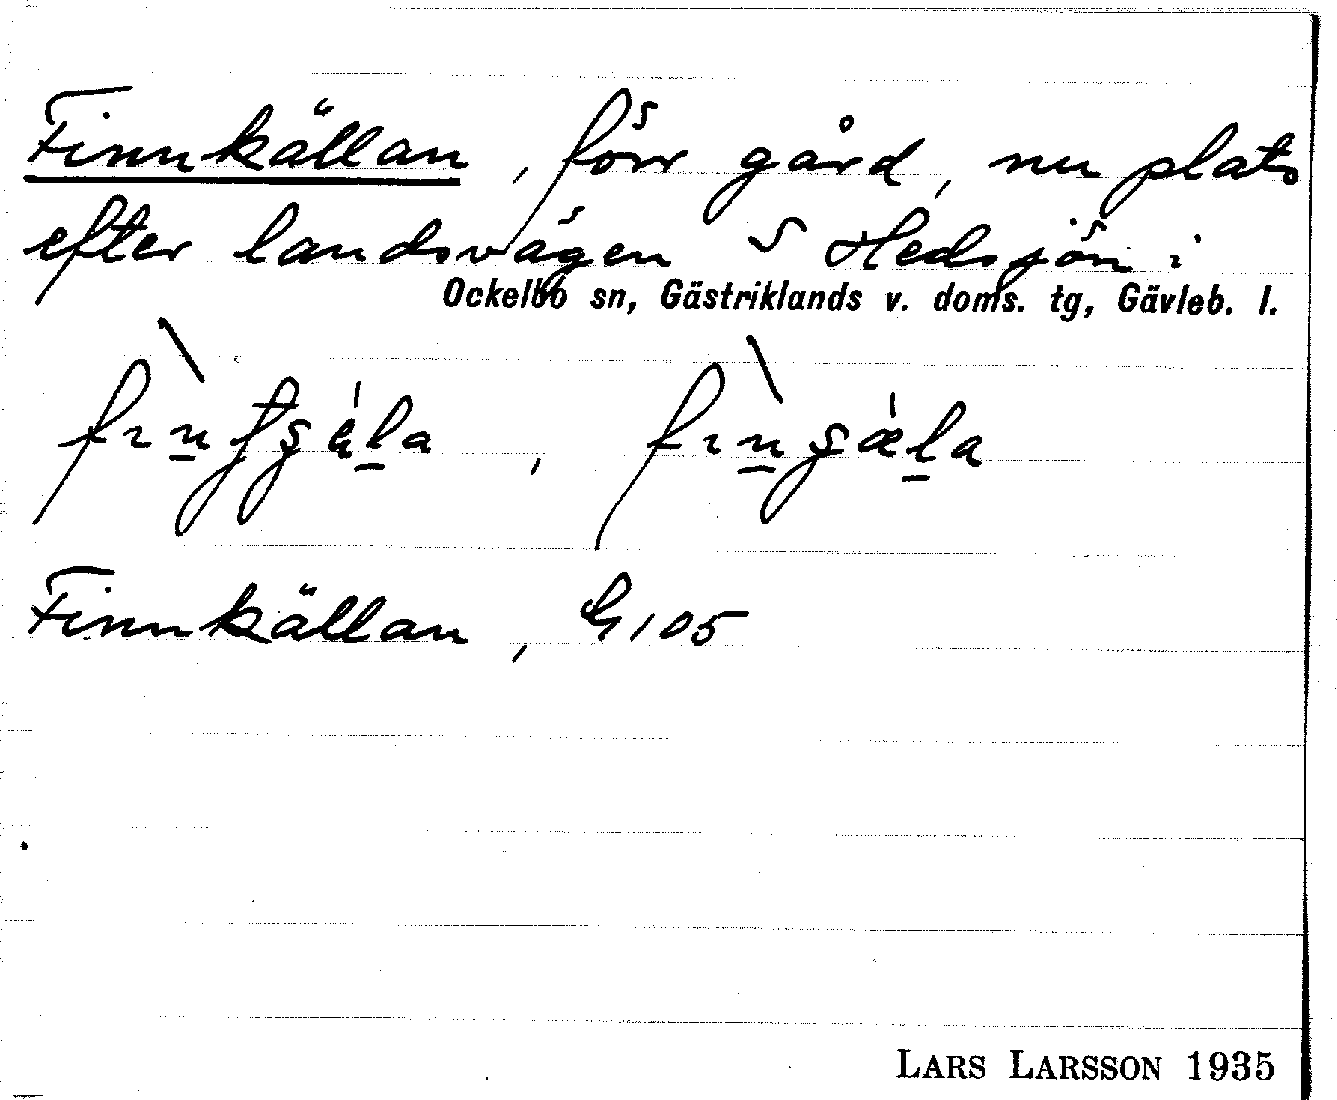 Finnkällan, förr gård, nu plats
efter landsvägen S Hedsjön i
Ockelbo sn, Gästriklands v. doms. tg, Gävleb. l.
Finnkällan, G105
LARS LARSSON 1935